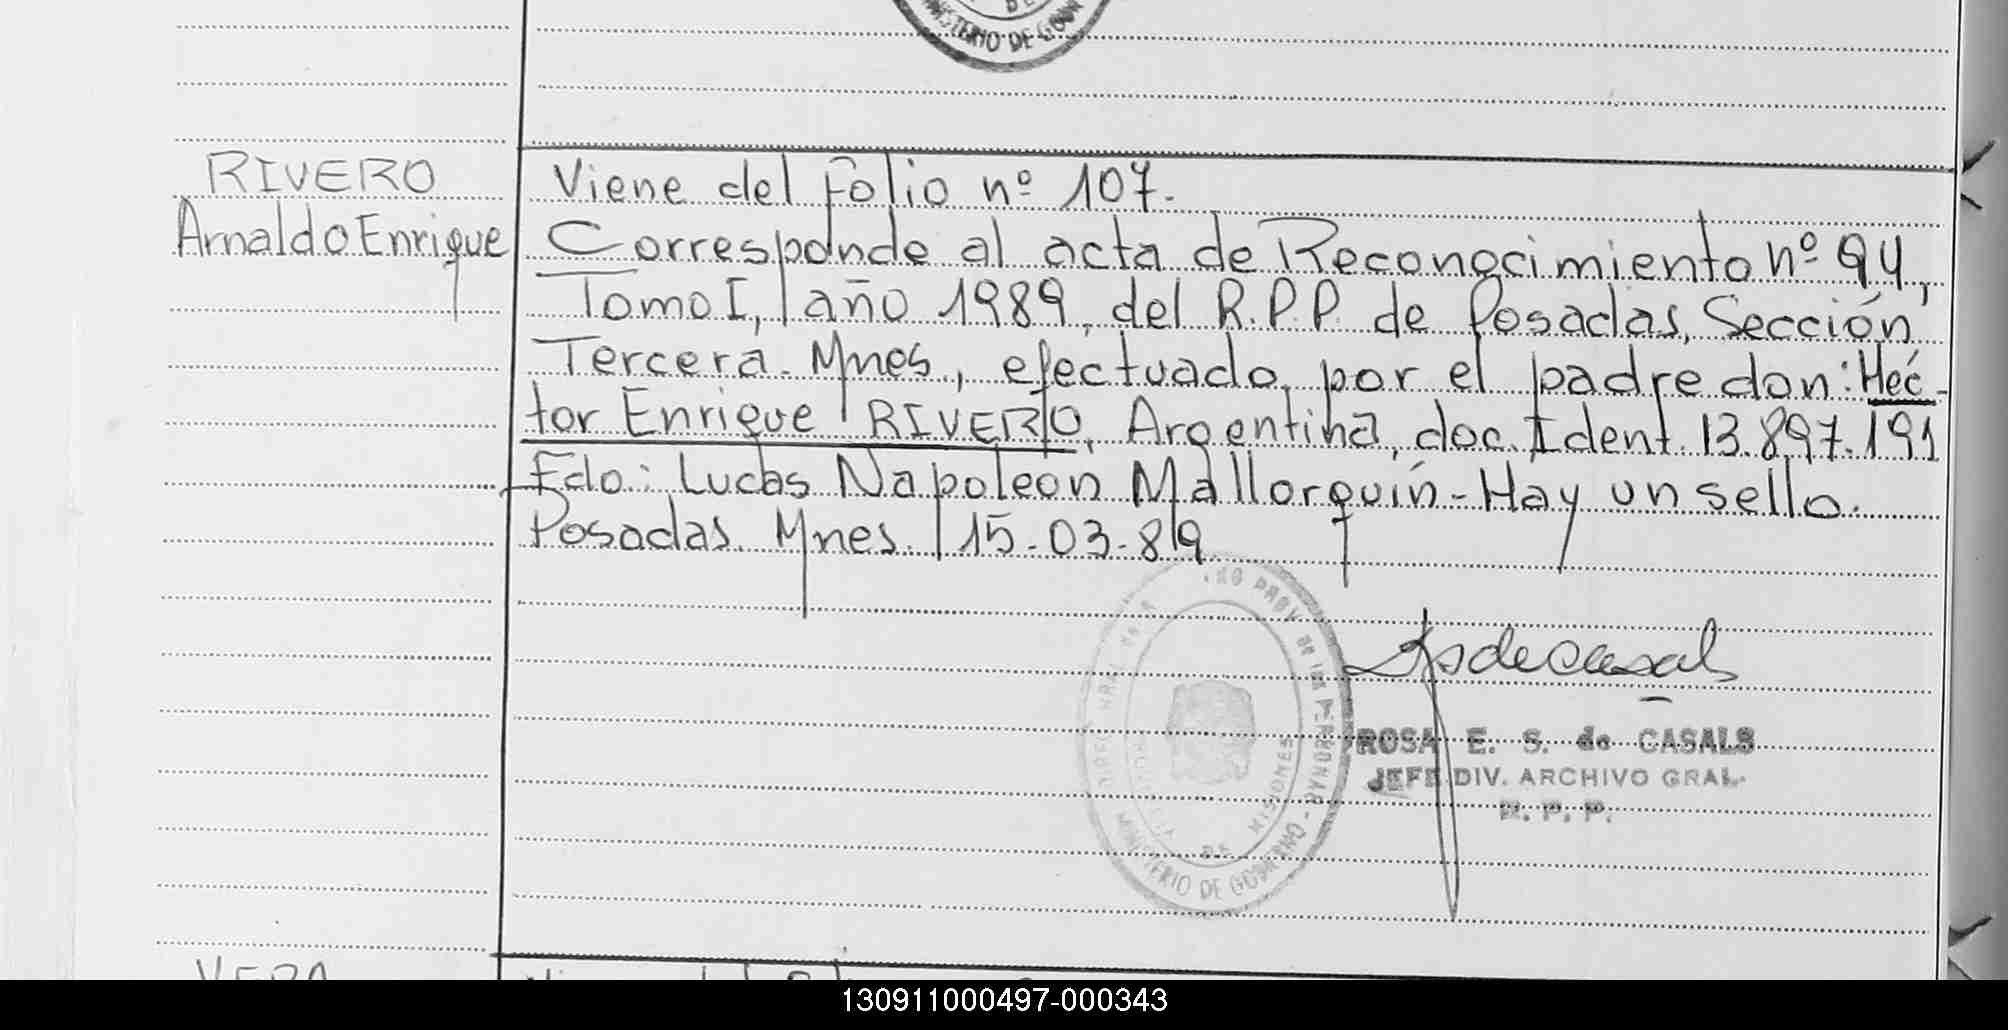 MINISTERIO DE GOB
RIVERO
Arnaldo Enrique
Viene del folio nº 107.
Corresponde al acta de Reconocimiento nº 94,
Tomo I, año 1989, del R.P.P. de Posadas, Sección
Tercera. Mnes., efectuado por el padre don: Héc-
tor Enrique RIVERO, Argentina, doc. Ident. 13.897.191
Fdo: Lucas Napoleon Mallorquín - Hay un sello.
Posadas. Mnes. 15-03-89
PROV de las PERSONAS - MINISTERIO DE GOBIERNO
DE MISIONES
ROSA E. S. de CASALS
JEFE DIV. ARCHIVO GRAL.
R. P. P.
VERA
130911000497-000343